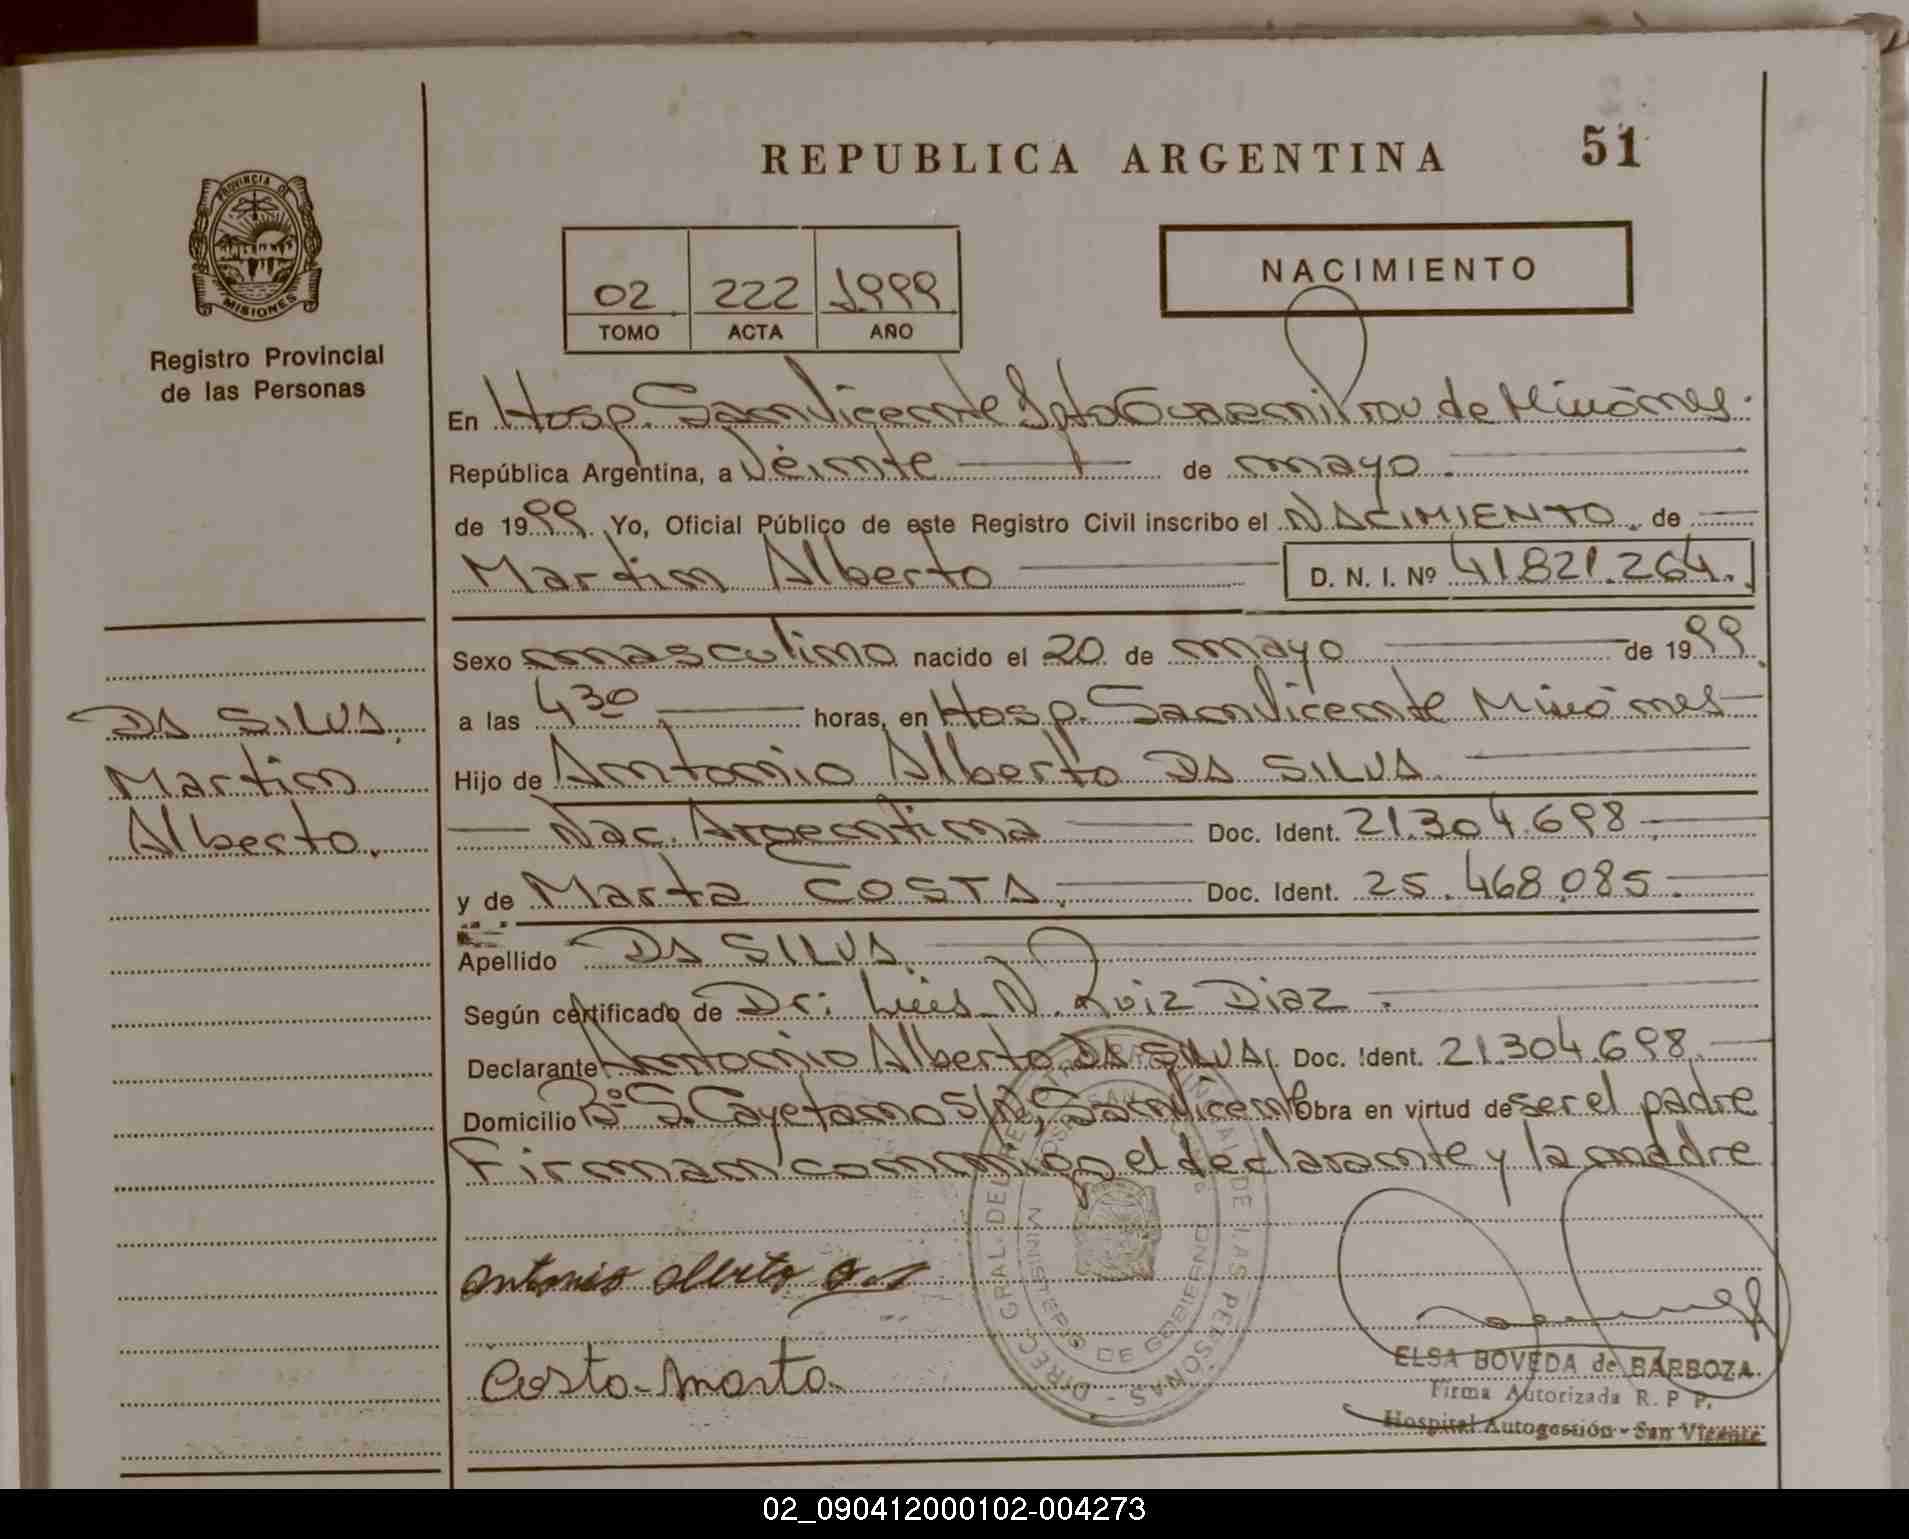 REPUBLICA ARGENTINA
51
PROVINCIA DE
MISIONES
Registro Provincial
de las Personas
02 222 1999
TOMO ACTA AÑO
NACIMIENTO
En Hosp. San Vicente Dpto Guarani Prov de Misiones.
República Argentina, a Veinte de mayo.
de 1999. Yo, Oficial Público de este Registro Civil inscribo el NACIMIENTO. de
Martin Alberto D. N. I. Nº 41.821.264.
Sexo masculino nacido el 20 de mayo de 1999.
a las 4 30 horas, en Hosp. San Vicente Misiones
Hijo de Antonio Alberto DA SILVA.
Nac. Argentina Doc. Ident. 21.304.698.
y de Marta COSTA. Doc. Ident. 25.468.085.
DA SILVA,
Martin
Alberto.
Apellido DA SILVA.
Según certificado de Dr: Luis N. Ruiz Diaz.
Declarante Antonio Alberto DA SILVA. Doc. Ident. 21.304.698.
Domicilio Bº S. Cayetano S/Nº, San Vicente Obra en virtud de ser el padre
Firman conmigo el declarante y la madre
antonio alberto
Costa-marta.
DIREC. GRAL. DEL DE LAS PERSONAS
MINISTERIO DE GOBIERNO
ELSA BOVEDA de BARBOZA
Firma Autorizada R. P. P.
Hospital Autogestión - San Vicente
02_090412000102-004273